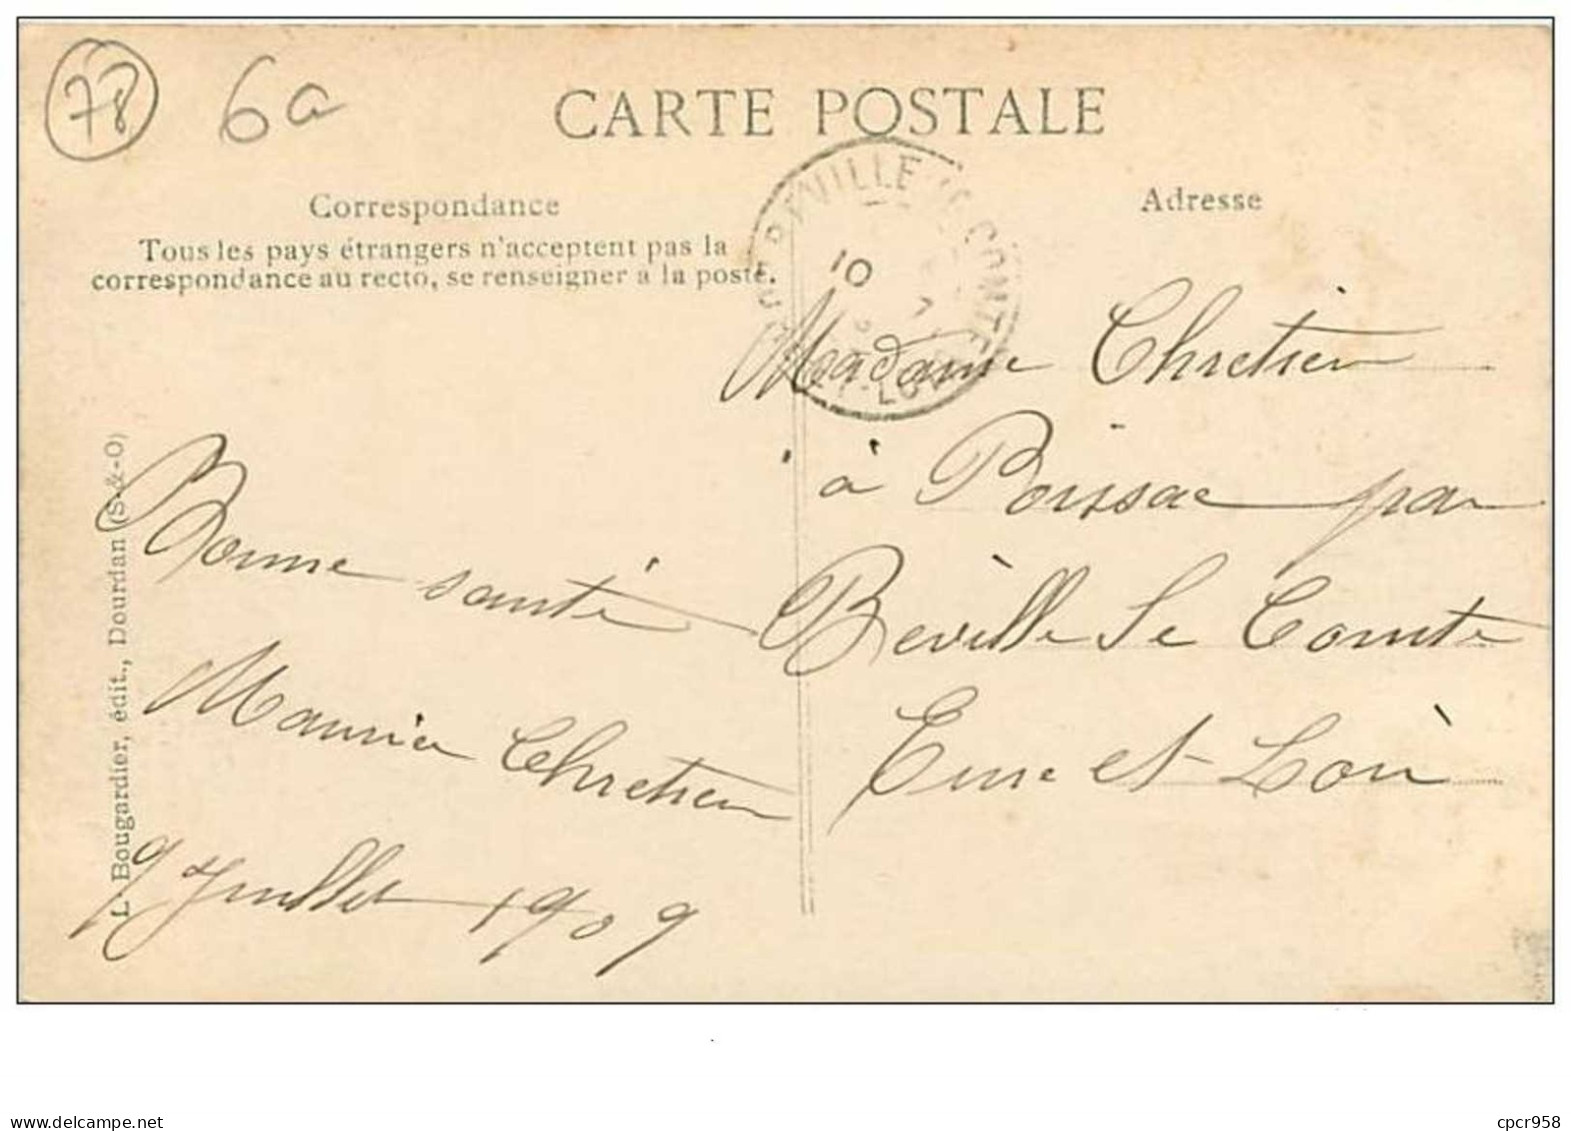 78
6a
CARTE POSTALE
Correspondance
Tous les pays étrangers n'acceptent pas la
correspondance au recto, se renseigner a la poste.
Adresse
AUNEAU BEVILLE LE COMTE
10
7
Madame Chretien
à Boissac par
Beville le Comte
Eure et Loir
Bonne santé
Maurice Chretien
9 Juillet 1909
L. Bougardier, édit., Dourdan (S-&-O)
www.delcampe.net
cpcr958